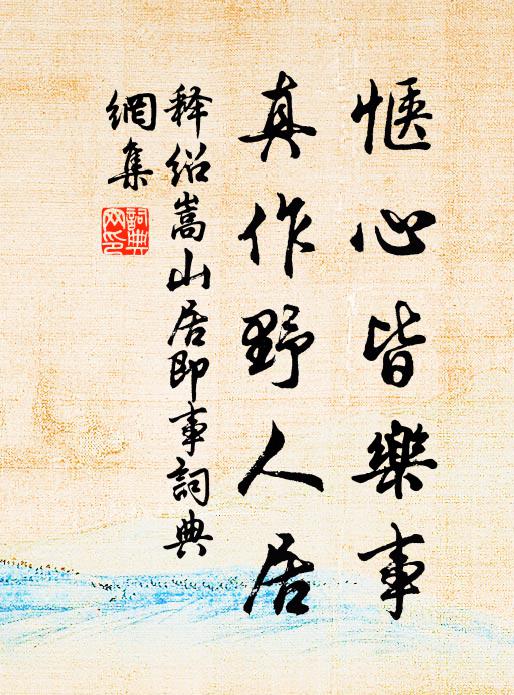 惬心皆樂事
真作野人居
释绍嵩山居即事詞典
網集
詞典
网印